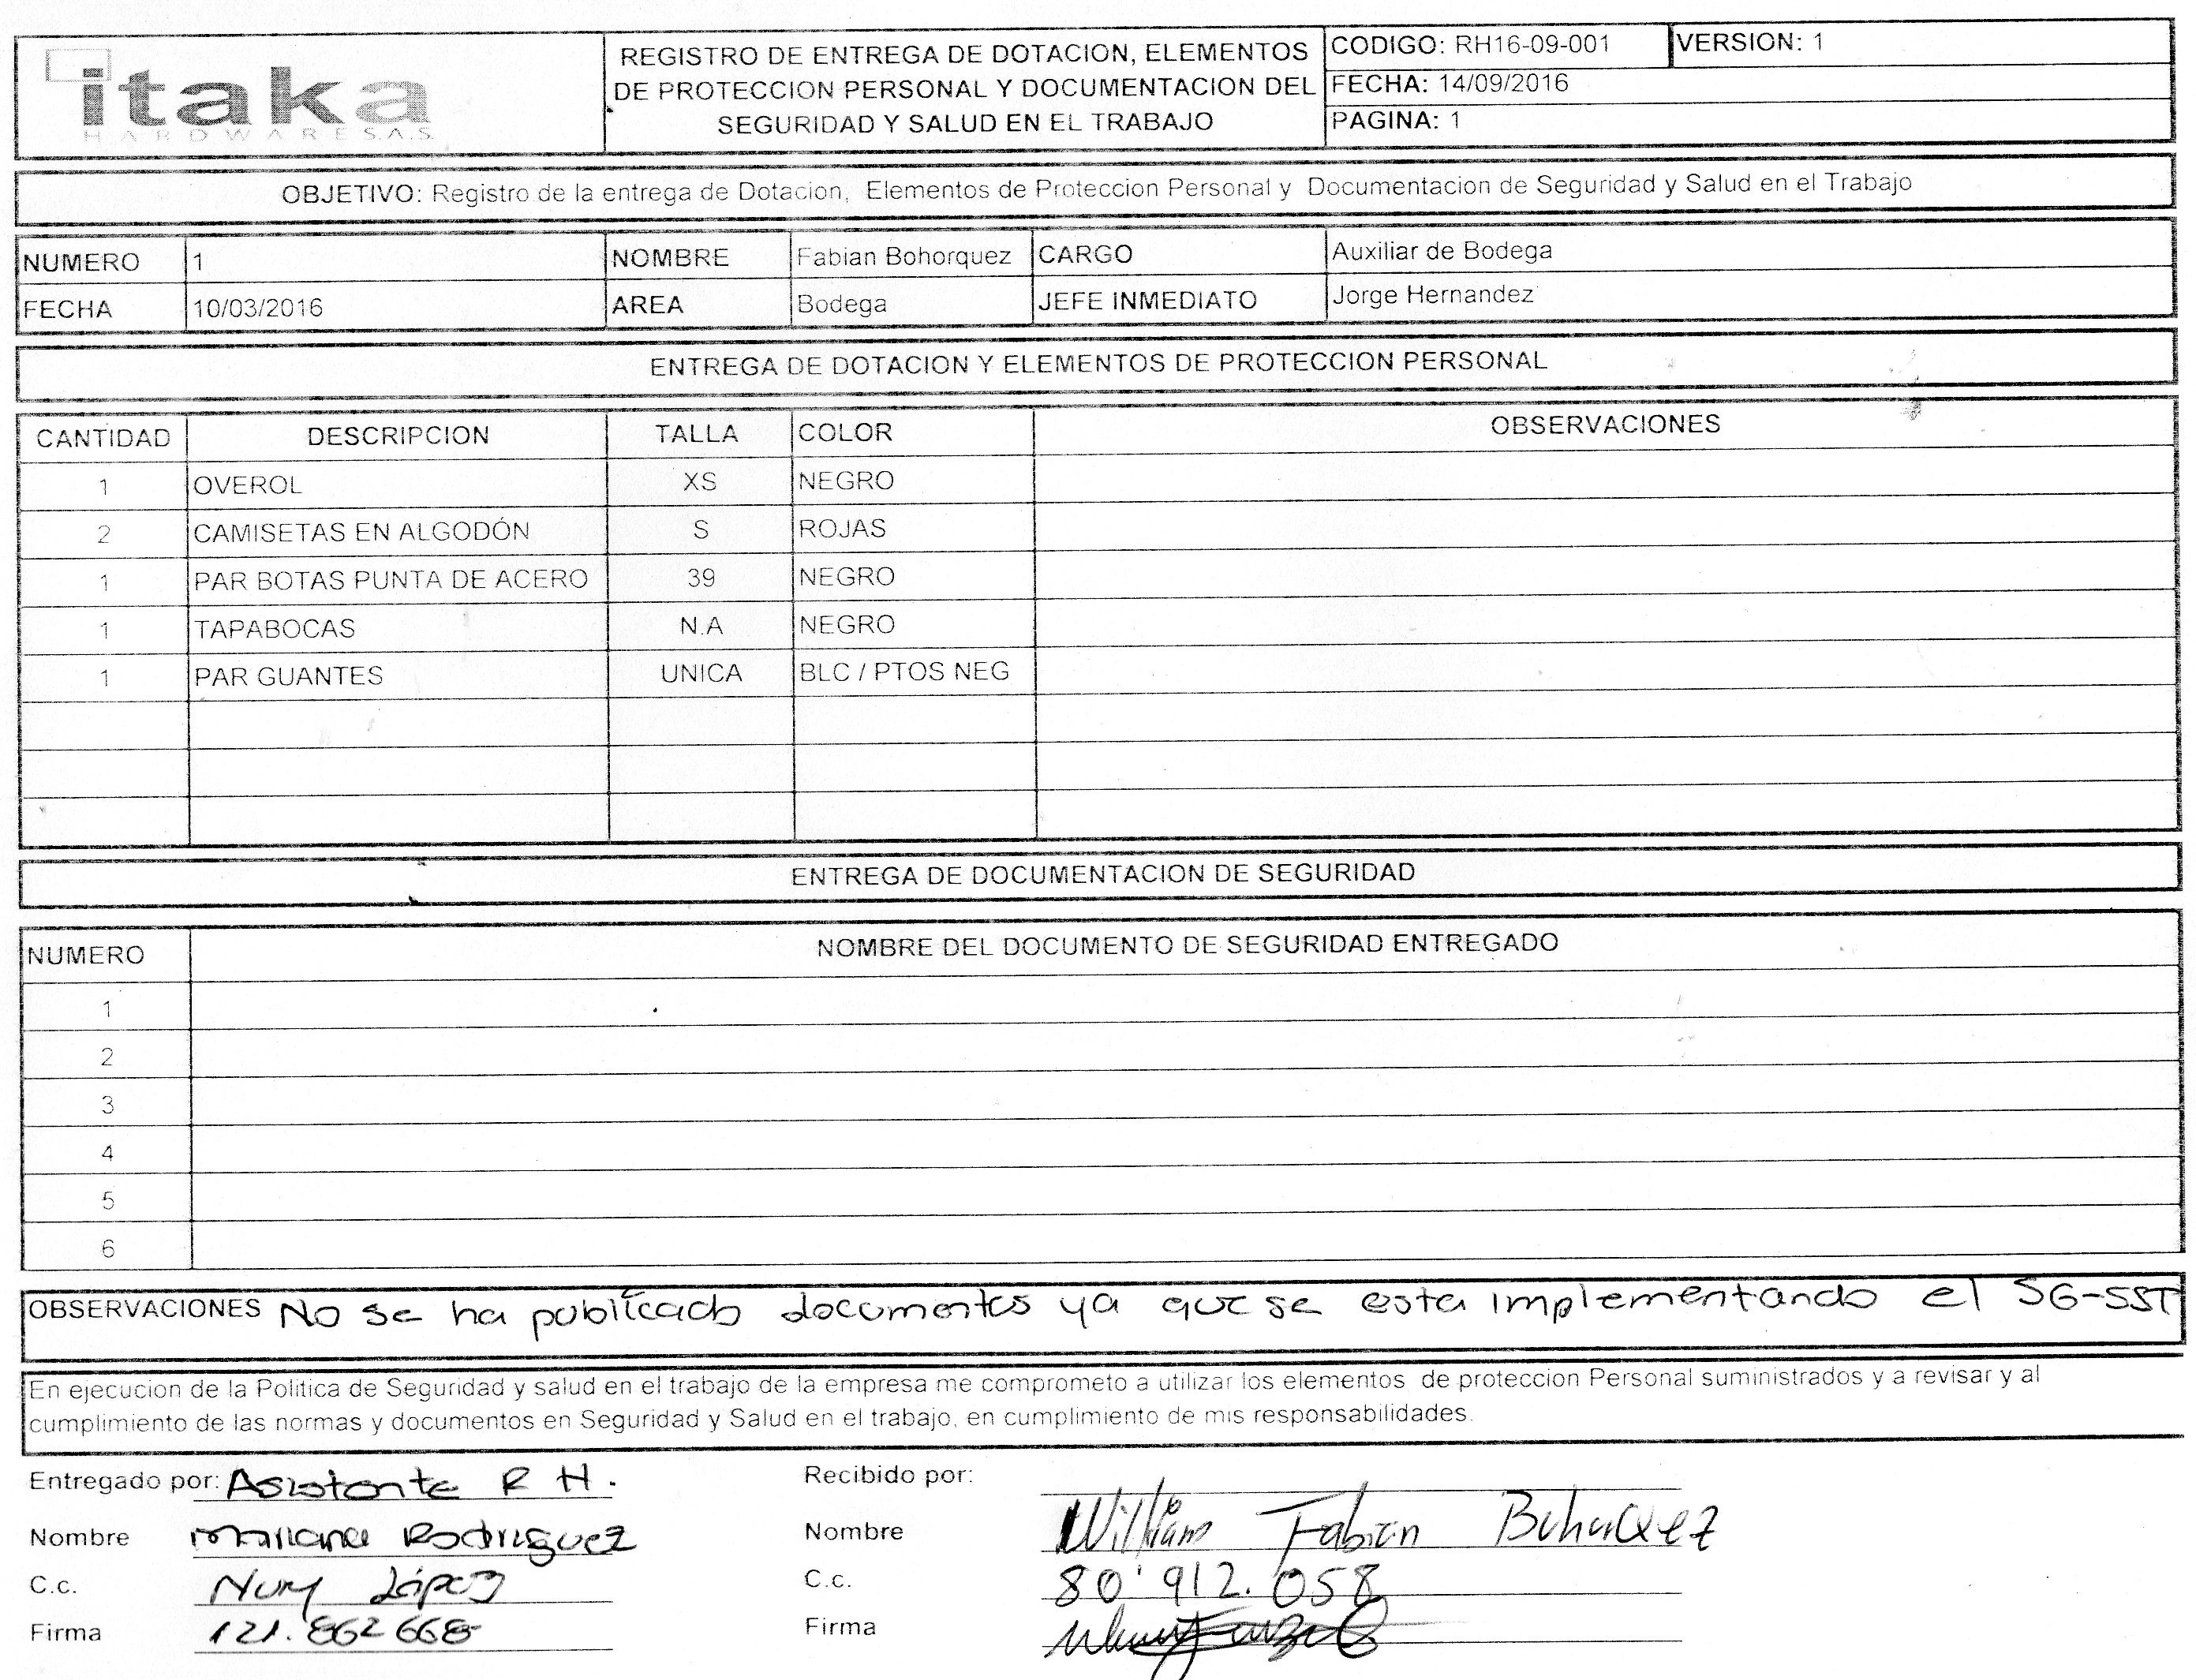 itaka
HARDWARE S.A.S.
REGISTRO DE ENTREGA DE DOTACION, ELEMENTOS
DE PROTECCION PERSONAL Y DOCUMENTACION DEL
SEGURIDAD Y SALUD EN EL TRABAJO
CODIGO: RH16-09-001 VERSION: 1
FECHA: 14/09/2016
PAGINA: 1
OBJETIVO: Registro de la entrega de Dotacion, Elementos de Proteccion Personal y Documentacion de Seguridad y Salud en el Trabajo
NUMERO 1 NOMBRE Fabian Bohorquez CARGO Auxiliar de Bodega
FECHA 10/03/2016 AREA Bodega JEFE INMEDIATO Jorge Hernandez
ENTREGA DE DOTACION Y ELEMENTOS DE PROTECCION PERSONAL
CANTIDAD DESCRIPCION TALLA COLOR OBSERVACIONES
1 OVEROL XS NEGRO
2 CAMISETAS EN ALGODÓN S ROJAS
1 PAR BOTAS PUNTA DE ACERO 39 NEGRO
1 TAPABOCAS N.A NEGRO
1 PAR GUANTES UNICA BLC / PTOS NEG
ENTREGA DE DOCUMENTACION DE SEGURIDAD
NUMERO NOMBRE DEL DOCUMENTO DE SEGURIDAD ENTREGADO
1
2
3
4
5
6
OBSERVACIONES No se ha publicado documentos ya que se esta implementando el SG-SST
En ejecucion de la Politica de Seguridad y salud en el trabajo de la empresa me comprometo a utilizar los elementos de proteccion Personal suministrados y a revisar y al
cumplimiento de las normas y documentos en Seguridad y Salud en el trabajo, en cumplimiento de mis responsabilidades.
Entregado por: Asistente R H. Recibido por:
Nombre Mariana Rodriguez Nombre William Fabian Bohorquez
C.c. Nury López C.c. 80'912.058
Firma 121.862668 Firma